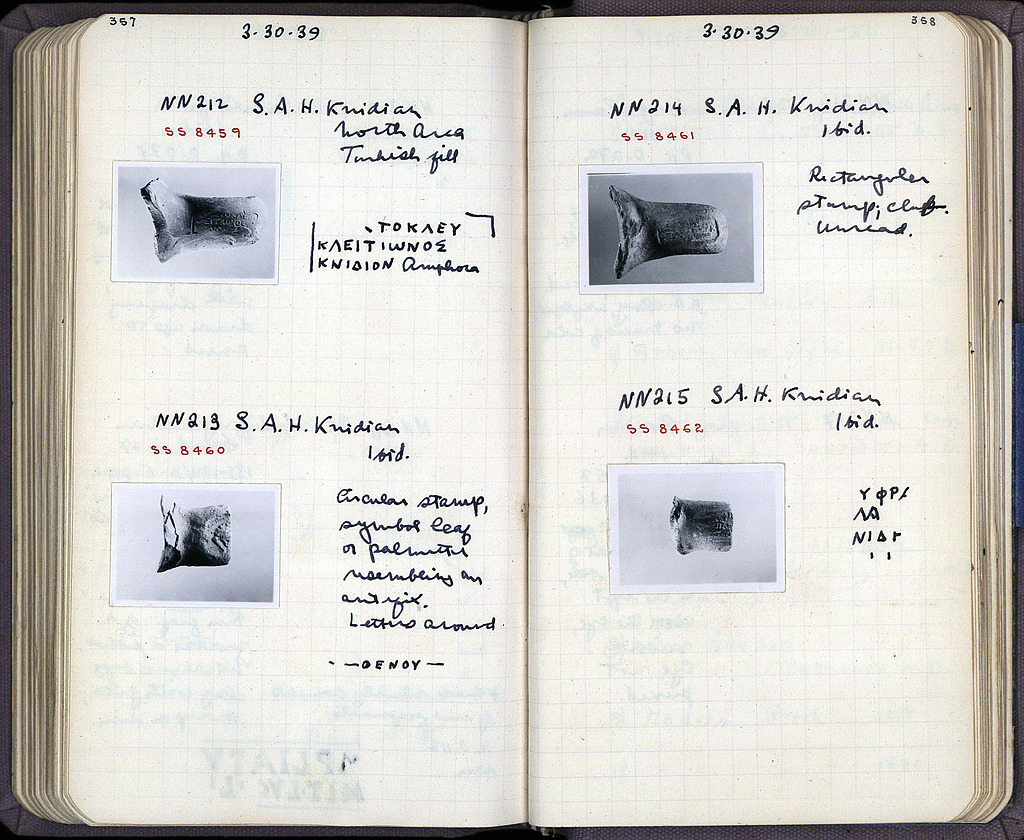 357
3·30·39
NN212 S.A.H. Knidian
SS 8459
North Area
Turkish fill
·ΤΟΚΛΕΥ
ΚΛΕΙΤΙΩΝΟΣ
ΚΝΙΔΙΟΝ Amphora
NN213 S.A.H. Knidian
SS 8460
Ibid.
Circular stamp,
symbol leaf
or palmette
resembling an
antefix.
Letters around
·—ΘΕΝΟΥ—
358
3·30·39
NN214 S.A.H. Knidian
SS 8461
Ibid.
Rectangular
stamp;
Unread.
NN215 S.A.H. Knidian
SS 8462
Ibid.
ΥΦΡ
ΝΙΔΙ